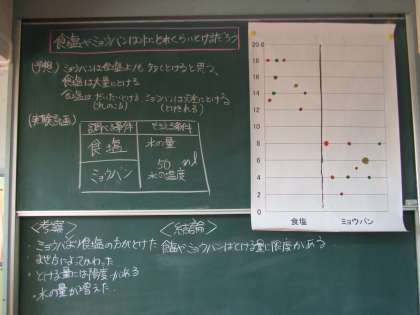 食塩やミョウバンは水にどれくらいとけるだろう
(予想) ミョウバンは食塩よりも多くとけると思う。
食塩は大量にとける
食塩はだいたいとける ミョウバンは完全にとける
(実験計画)
調べる条件 そろえる条件
食塩 水の量
50 ml
ミョウバン 水の温度
<考察>
・ミョウバンより食塩の方がとけた
・まぜ方によってかわった
・とける量には限度がある
・水の量が増えた
<結論>
食塩やミョウバンはとける量に限度がある.
20
18
16
14
12
10
8
6
4
2
0
食塩 ミョウバン